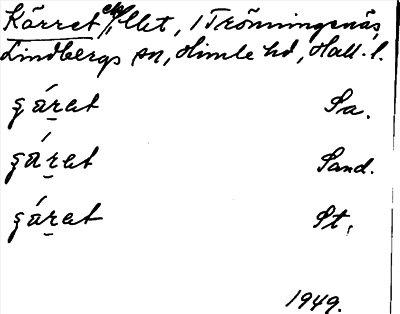 Kärret, Trönningenäs,
Lindbergs sn, Himle hd, Hall. l.
ʂáret Sa.
ʂáret Sand.
ʂáret St.
1949.